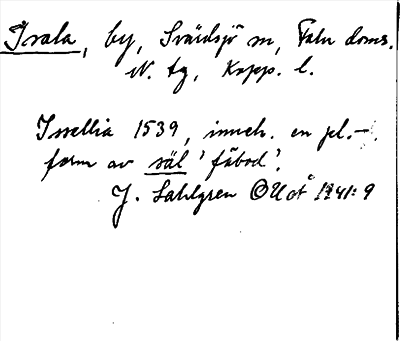 Isala, by, Svärdsjö sn, Falu doms.
N. tg, Kopp. l.
Issellia 1539, inneh. en pl.-
form av säl 'fäbod'.
J. Sahlgren OUÅ 1941: 9